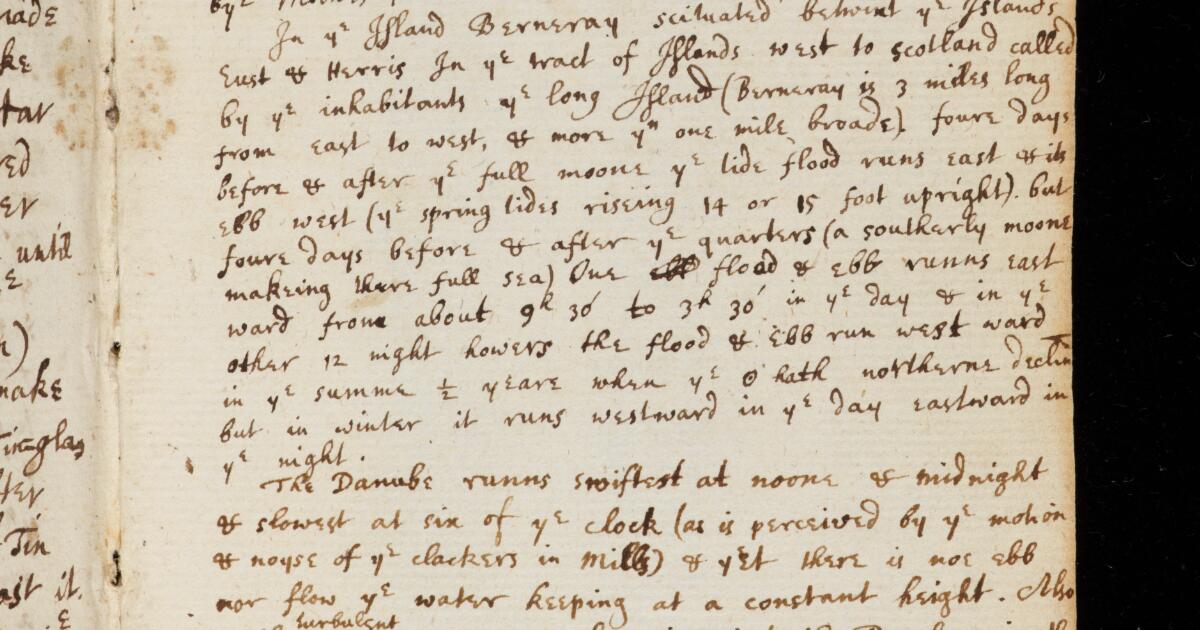 nade
ke
tar
red
er
until
e
nake
Tin-glas
ter
Tin
ast it.
In yᵉ Island Berneray scituated betwixt yᵉ Islands
Eust & Herris In yᵉ tract of Islands west to scotland called
by yᵉ inhabitants yᵉ long Island (Berneray is 3 miles long
from east to west, & more yⁿ one mile broade). foure days
before & after yᵉ full moone yᵉ tide flood runs east & its
ebb west (yᵉ spring tides riseing 14 or 15 foot upright). but
foure days before & after yᵉ quarters (a southerly moone
makeing there full sea) One flood & ebb runns east
ward from about 9ʰ 30′ to 3ʰ 30′ in yᵉ day & in yᵉ
other 12 night howers the flood & Ebb run west ward
in yᵉ summe ½ yeare when yᵉ ☉ hath northerne declin
but in winter it runs westward in yᵉ day eastward in
yᵉ night.
The Danube runns swiftest at noone & midnight
& slowest at six of yᵉ clock (as is perceived by yᵉ motion
& noyse of yᵉ clackers in Mills) & yet there is noe ebb
nor flow yᵉ water keeping at a constant height. Also
turbulent